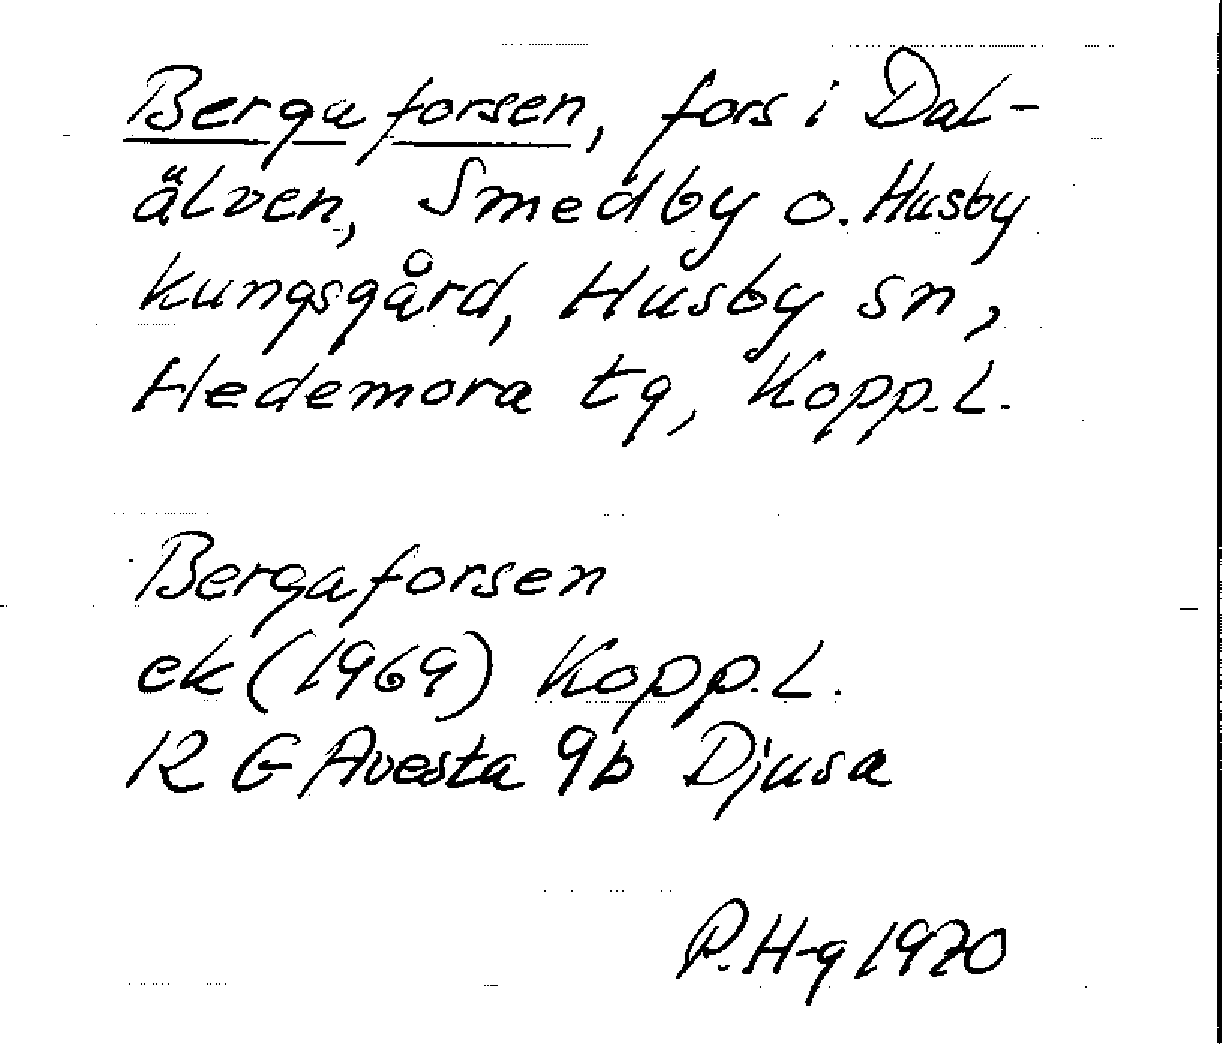 Bergaforsen, fors i Dal-
älven, Smedby o. Husby
kungsgård, Husby sn,
Hedemora tg, Kopp. L.
Bergaforsen
ek (1969) Kopp. L.
12 G Avesta 9b Djusa
P. H-g 1970